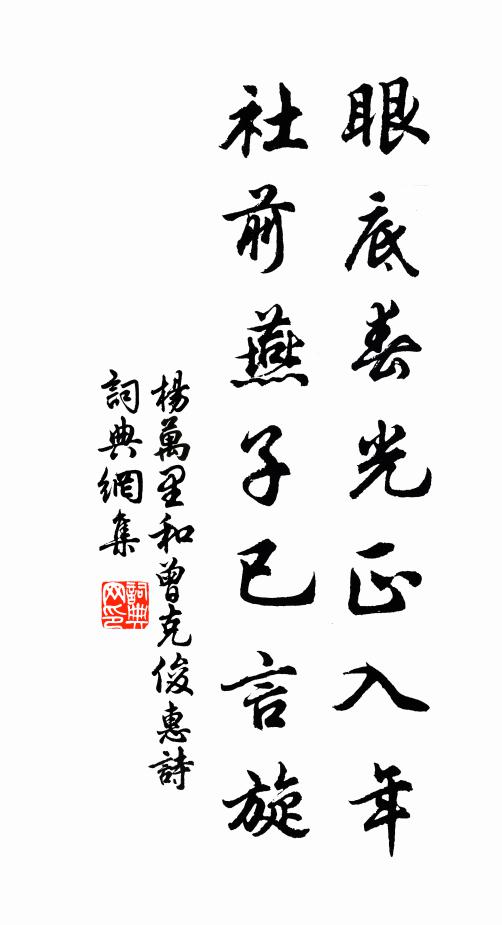 眼底春光正入年
社前燕子已言旋
楊萬里和曾克俊惠詩
詞典網集
詞典
网印